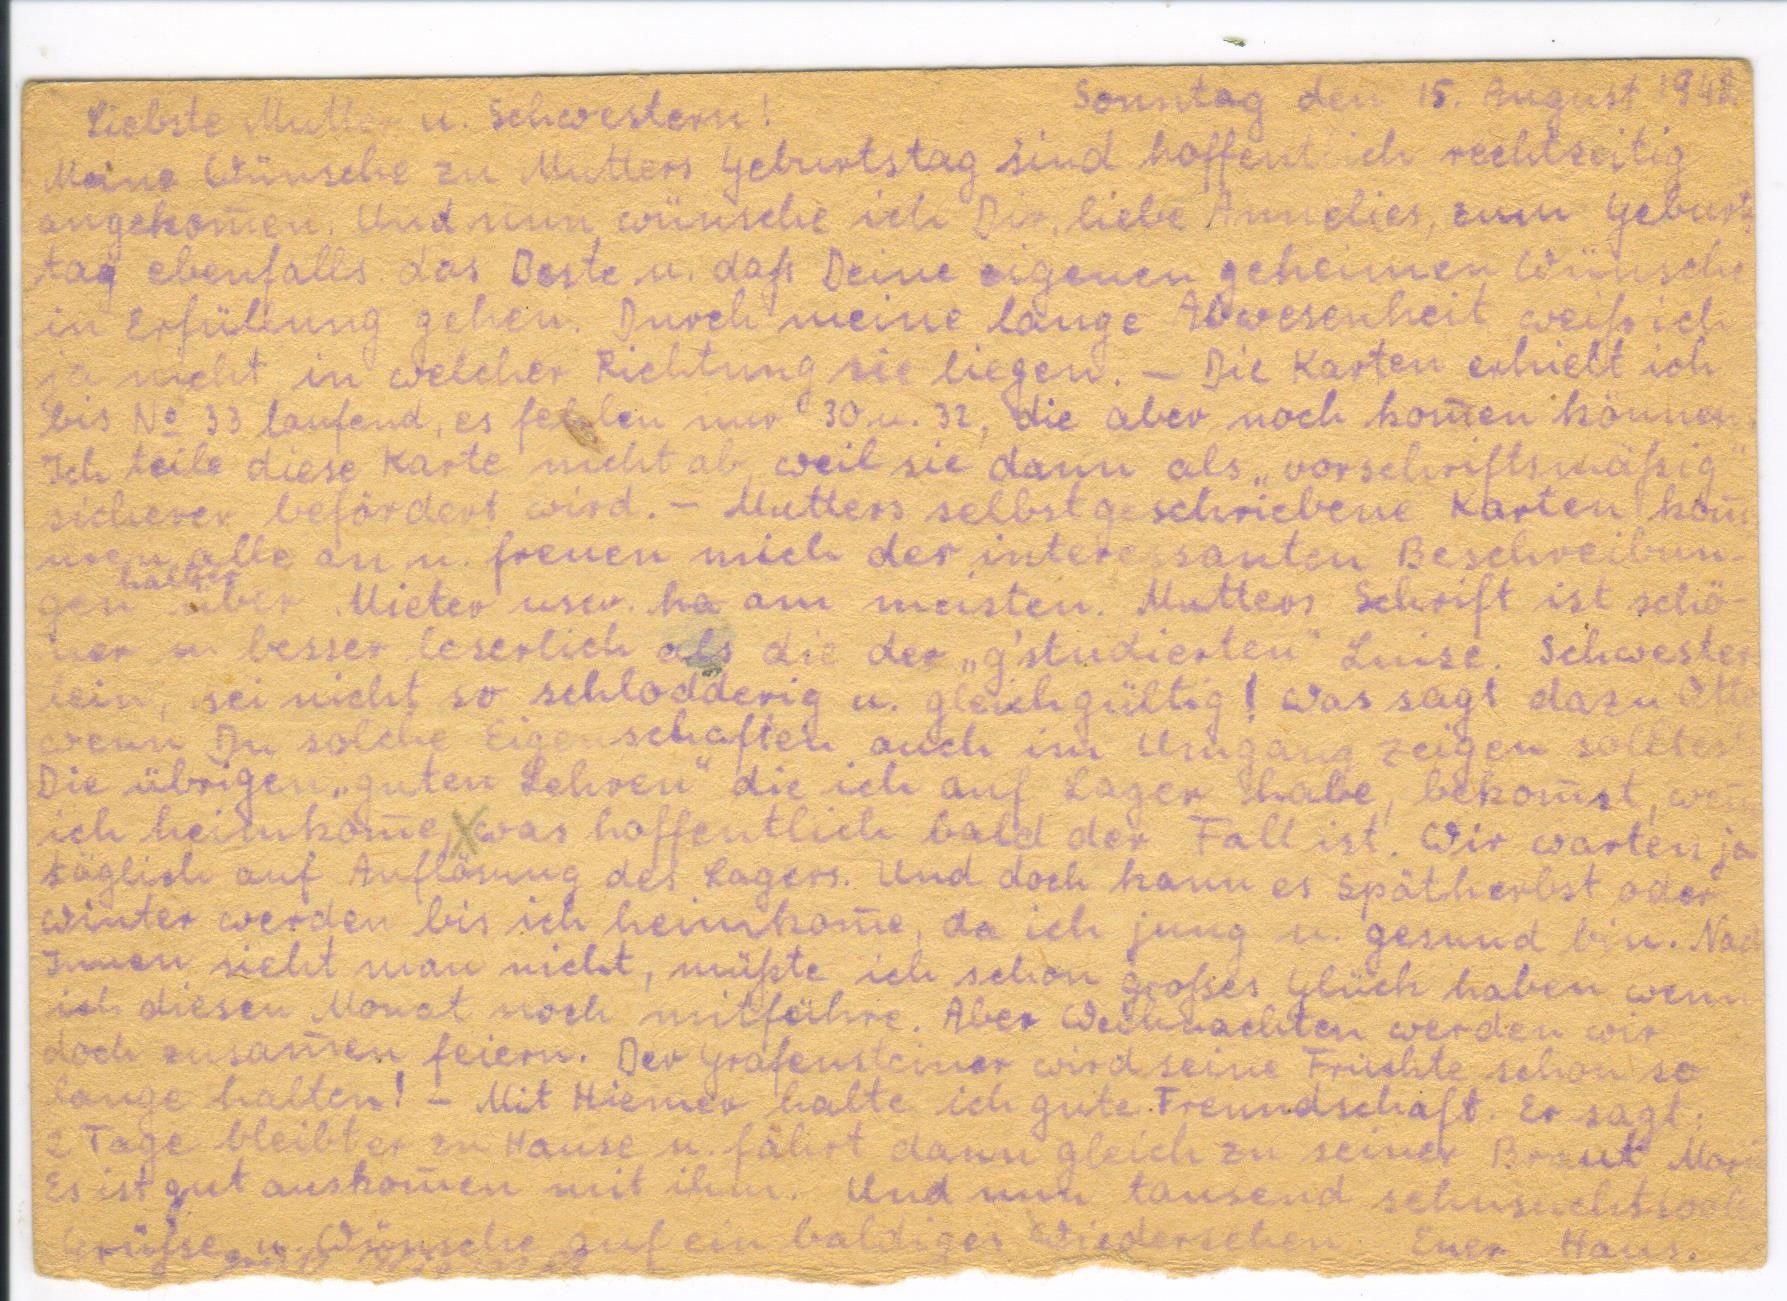 Sonntag den 15. August 1948.
Liebste Mutter u. Schwestern!
Meine Wünsche zu Mutters Geburtstag sind hoffentlich rechtzeitig
angekom̄en. Und nun wünsche ich Dir, liebe Annelies, zum Geburts
tag ebenfalls das Beste u. daß Deine eigenen geheimen Wünsche
in Erfüllung gehen. Durch meine lange Abwesenheit weiß ich
ja nicht in welcher Richtung sie liegen. – Die Karten erhielt ich
bis No 33 laufend, es fehlen nur 30 u. 32, die aber noch kom̄en können.
Ich teile diese Karte nicht ab, weil sie dann als „vorschriftsmäßig"
sicherer befördert wird. – Mutters selbstgeschriebene Karten kom̄
men alle an u. freuen mich der interessanten Beschreibun-
gen halber über Mieter usw. ha am meisten. Mutters Schrift ist schö-
ner u. besser leserlich als die der „g'studierten" Luise. Schwester
lein, sei nicht so schlodderig u. gleichgültig! Was sagt dazu Otto
wenn Du solche Eigenschaften auch im Umgang zeigen solltest
Die übrigen „guten Lehren" die ich auf Lager habe, bekom̄st, wenn
ich heimkom̄e, was hoffentlich bald der Fall ist. Wir warten ja
täglich auf Auflösung des Lagers. Und doch kann es Spätherbst oder
Winter werden bis ich heimkom̄e, da ich jung u. gesund bin. Nach
Innen sieht man nicht, müßte ich schon großes Glück haben wenn
ich diesen Monat noch mitführe. Aber Weihnachten werden wir
doch zusam̄en feiern. Der Grafensteiner wird seine Früchte schon so
lange halten! – Mit Hiemer halte ich gute Freundschaft. Er sagt:
2 Tage bleibt er zu Hause u. fährt dann gleich zu seiner Braut
Es ist gut auskom̄en mit ihm. Und nun tausend sehnsuchtsvolle
Grüße u. Wünsche auf ein baldiges Wiedersehen. Euer Hans.